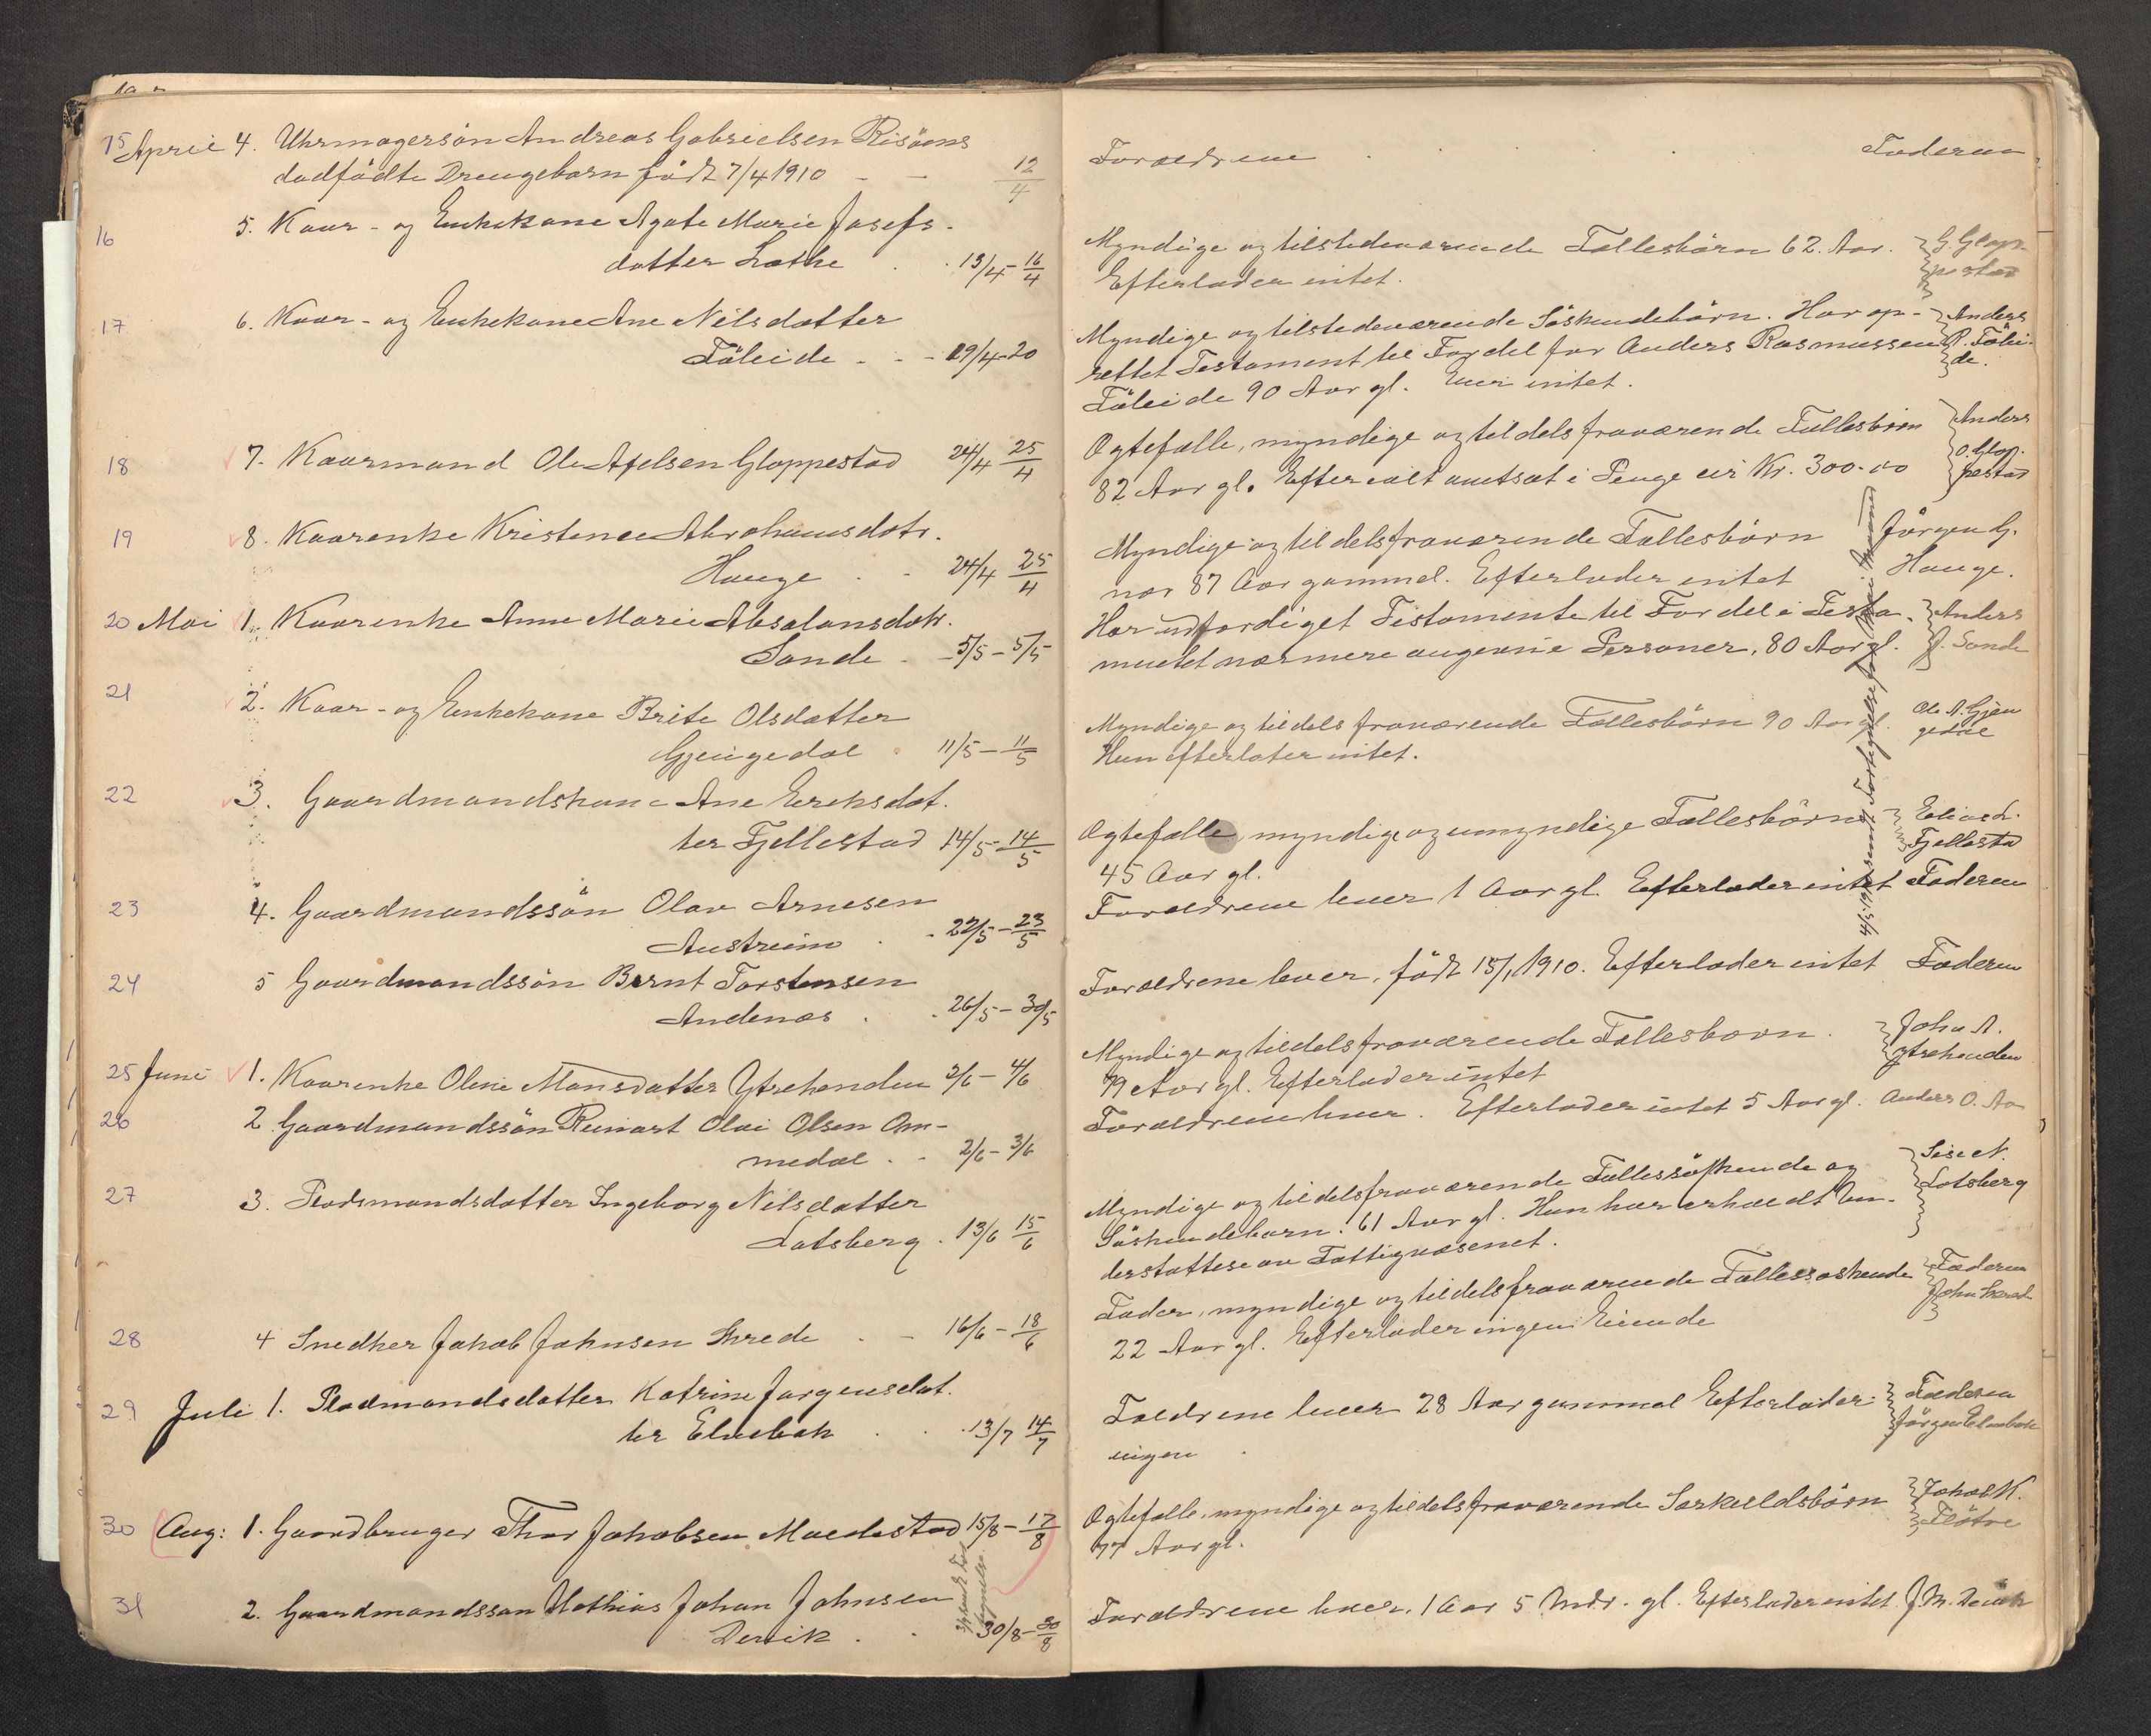 15 April 4. Uhrmagersön Andreas Gabrielsen Risöens
dødfödte Drengebarn födt 7/4 1910 - - 12/4
16 5. Kaar- og Enkekone Agate Marie Josefs-
datter Lothe . . 13/4 - 16/4
17 6. Kaar- og Enkekone Ane Nilsdatter
Föleide . . - 19/4 - 20
18 7. Kaarmand Ole Axelsen Gloppestad 24/4 25/4
19 8. Kaarenke Kristence Abrahamsdotr.
Hauge . . 24/4 25/4
20 Mai 1. Kaarenke Anne Marie Absalonsdotr.
Sande . - 5/5 - 5/5
21 2. Kaar- og Enkekone Brite Olsdatter
Gjengedal . 11/5 - 11/5
22 3. Gaardmandskone Ane Eriksdat.
ter Fjellestad 14/5 - 14/5
23 4. Gaardmandssön Olav Arnesen
Austreim . . 22/5 - 23/5
24 5 Gaardmandssön Bernt Torstensen
Andenæs . . 26/5 - 30/5
25 Juni 1. Kaarenke Oline Monsdatter Ytrehenden 2/6 - 4/6
26 2. Gaardmandssön Reinart Olai Olsen Om-
medal . . 2/6 - 3/6
27 3. Pladsmandsdatter Ingeborg Nilsdatter
Lotsberg . 13/6 15/6
28 4 Snedker Jakob Johnsen Skrede . - 16/6 - 18/6
29 Juli 1. Pladmandsdatter Katrine Jørgensdat.
ter Elvebak . . 13/7 14/7
30 Aug: 1. Gaardbruger Thor Jakobsen Moldestad 15/8 - 17/8
31 2. Gaardmandssøn Mathias Johan Johnsen
Devik . . 30/8 - 30/8
Forældrene . . . Faderen
Myndige og tilstedeværende Fællesbörn 62. Aar. G. Glop-
Efterlader intet. pestad
Myndige og tilstedeværende Söskendebörn. Har op- Anders
rettet Testament til Fordel for Anders Rasmussen R. Fölei-
Föleide 90 Aar gl. Eier intet. de.
Ogtefælle, myndige og tildels fraværende Fællesbörn Anders
82 Aar gl. Efterialt avetsat i Penge eir Kr. 300.00 O. Glop-
pestad
Myndige og tildels fraværende Fællesbörn Jörgen G.
nær 87 Aar gammel. Efterlader intet Hauge.
Har udfærdiget Testamente til Fordel i Testa- Anders
mentet nærmere angivne Personer, 80 Aar gl. J. Sande
Myndige og tildels fraværende Fællesbörn 90 Aar gl. Ole A. Gjen
Hun efterlater intet. gedal
Ogtefælle, myndige og umyndige Fællesbörn Elias L.
45 Aar gl. Fjellesta
Forældrene lever 1 Aar gl. Efterlader intet Faderen
Forældrene lever, födt 15/1 1910. Efterlader intet Faderen
Myndige og tildels fraværende Fællesborn. John A.
79 Aar gl. Efterlader intet Ytrehenden
Forældrene lever. Efterlader intet 5 Aar gl. Anders O. Aa
Myndige og tildels fraværende Fællessöskende og Sise N.
Söskendebarn. 61 Aar gl. Hun har erholdt Un- Lotsberg
derstøttese av Fattigvæsenet.
Fader, myndige og tildels fraværende Fællessøskende Faderen
22 Aar gl. Efterlader ingen Eiende John Skrede
Foeldrene lever 28 Aar gammel Efterlader Faderen
ingen . Jörgen Elvebak
Ogtefælle, myndige og tildels fraværende Særkuldsbörn Jakob K.
77 Aar gl. Flötre
Forældrene lever. 1 Aar 5 Mdr. gl. Efterlader intet J. M. Devik